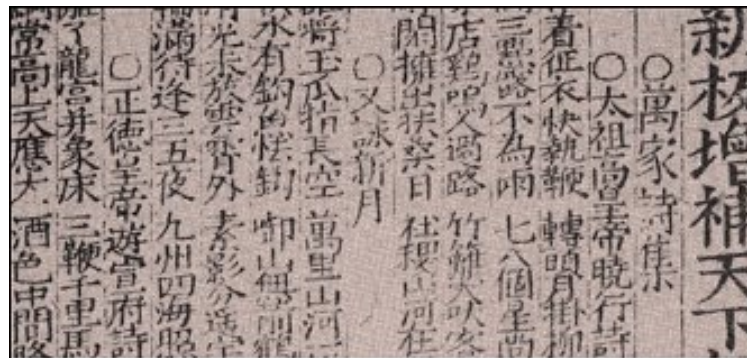 新板增補天下
○萬家詩集
○太祖高皇帝曉行詩
着征衣快執鞭 轉頭月掛柳
三點露不為雨 七八個星尚
店鷄鳴人過路 竹籬犬吠客
閒擁出扶桑日 社稷山河在
○又咏新月
將玉瓜指長空 萬里山河
水有鈎魚怯釣 啣山無箭鶴
光未放雲霄外 素影分遙
滿待逢三五夜 九州四海照
○正德皇帝遊宣府詩
了龍宮并象床 三鞭千里馬
常高上天應大 酒色中間路